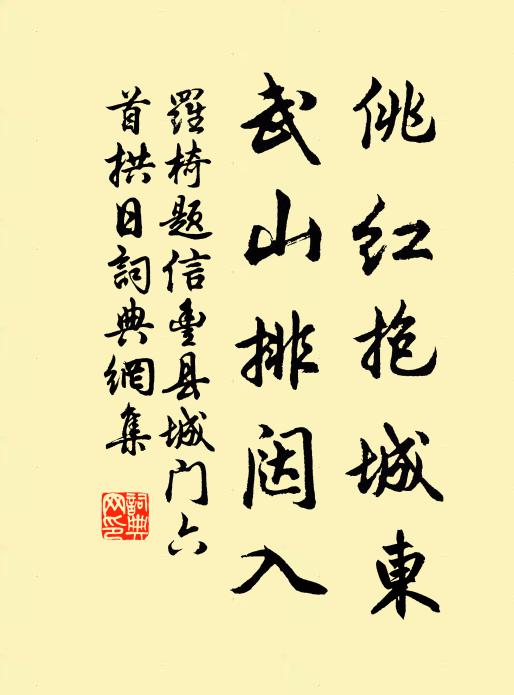 佻红抱城東
武山排闼入
羅椅题信豊县城门六
首拱日詞典網集
詞典
网印